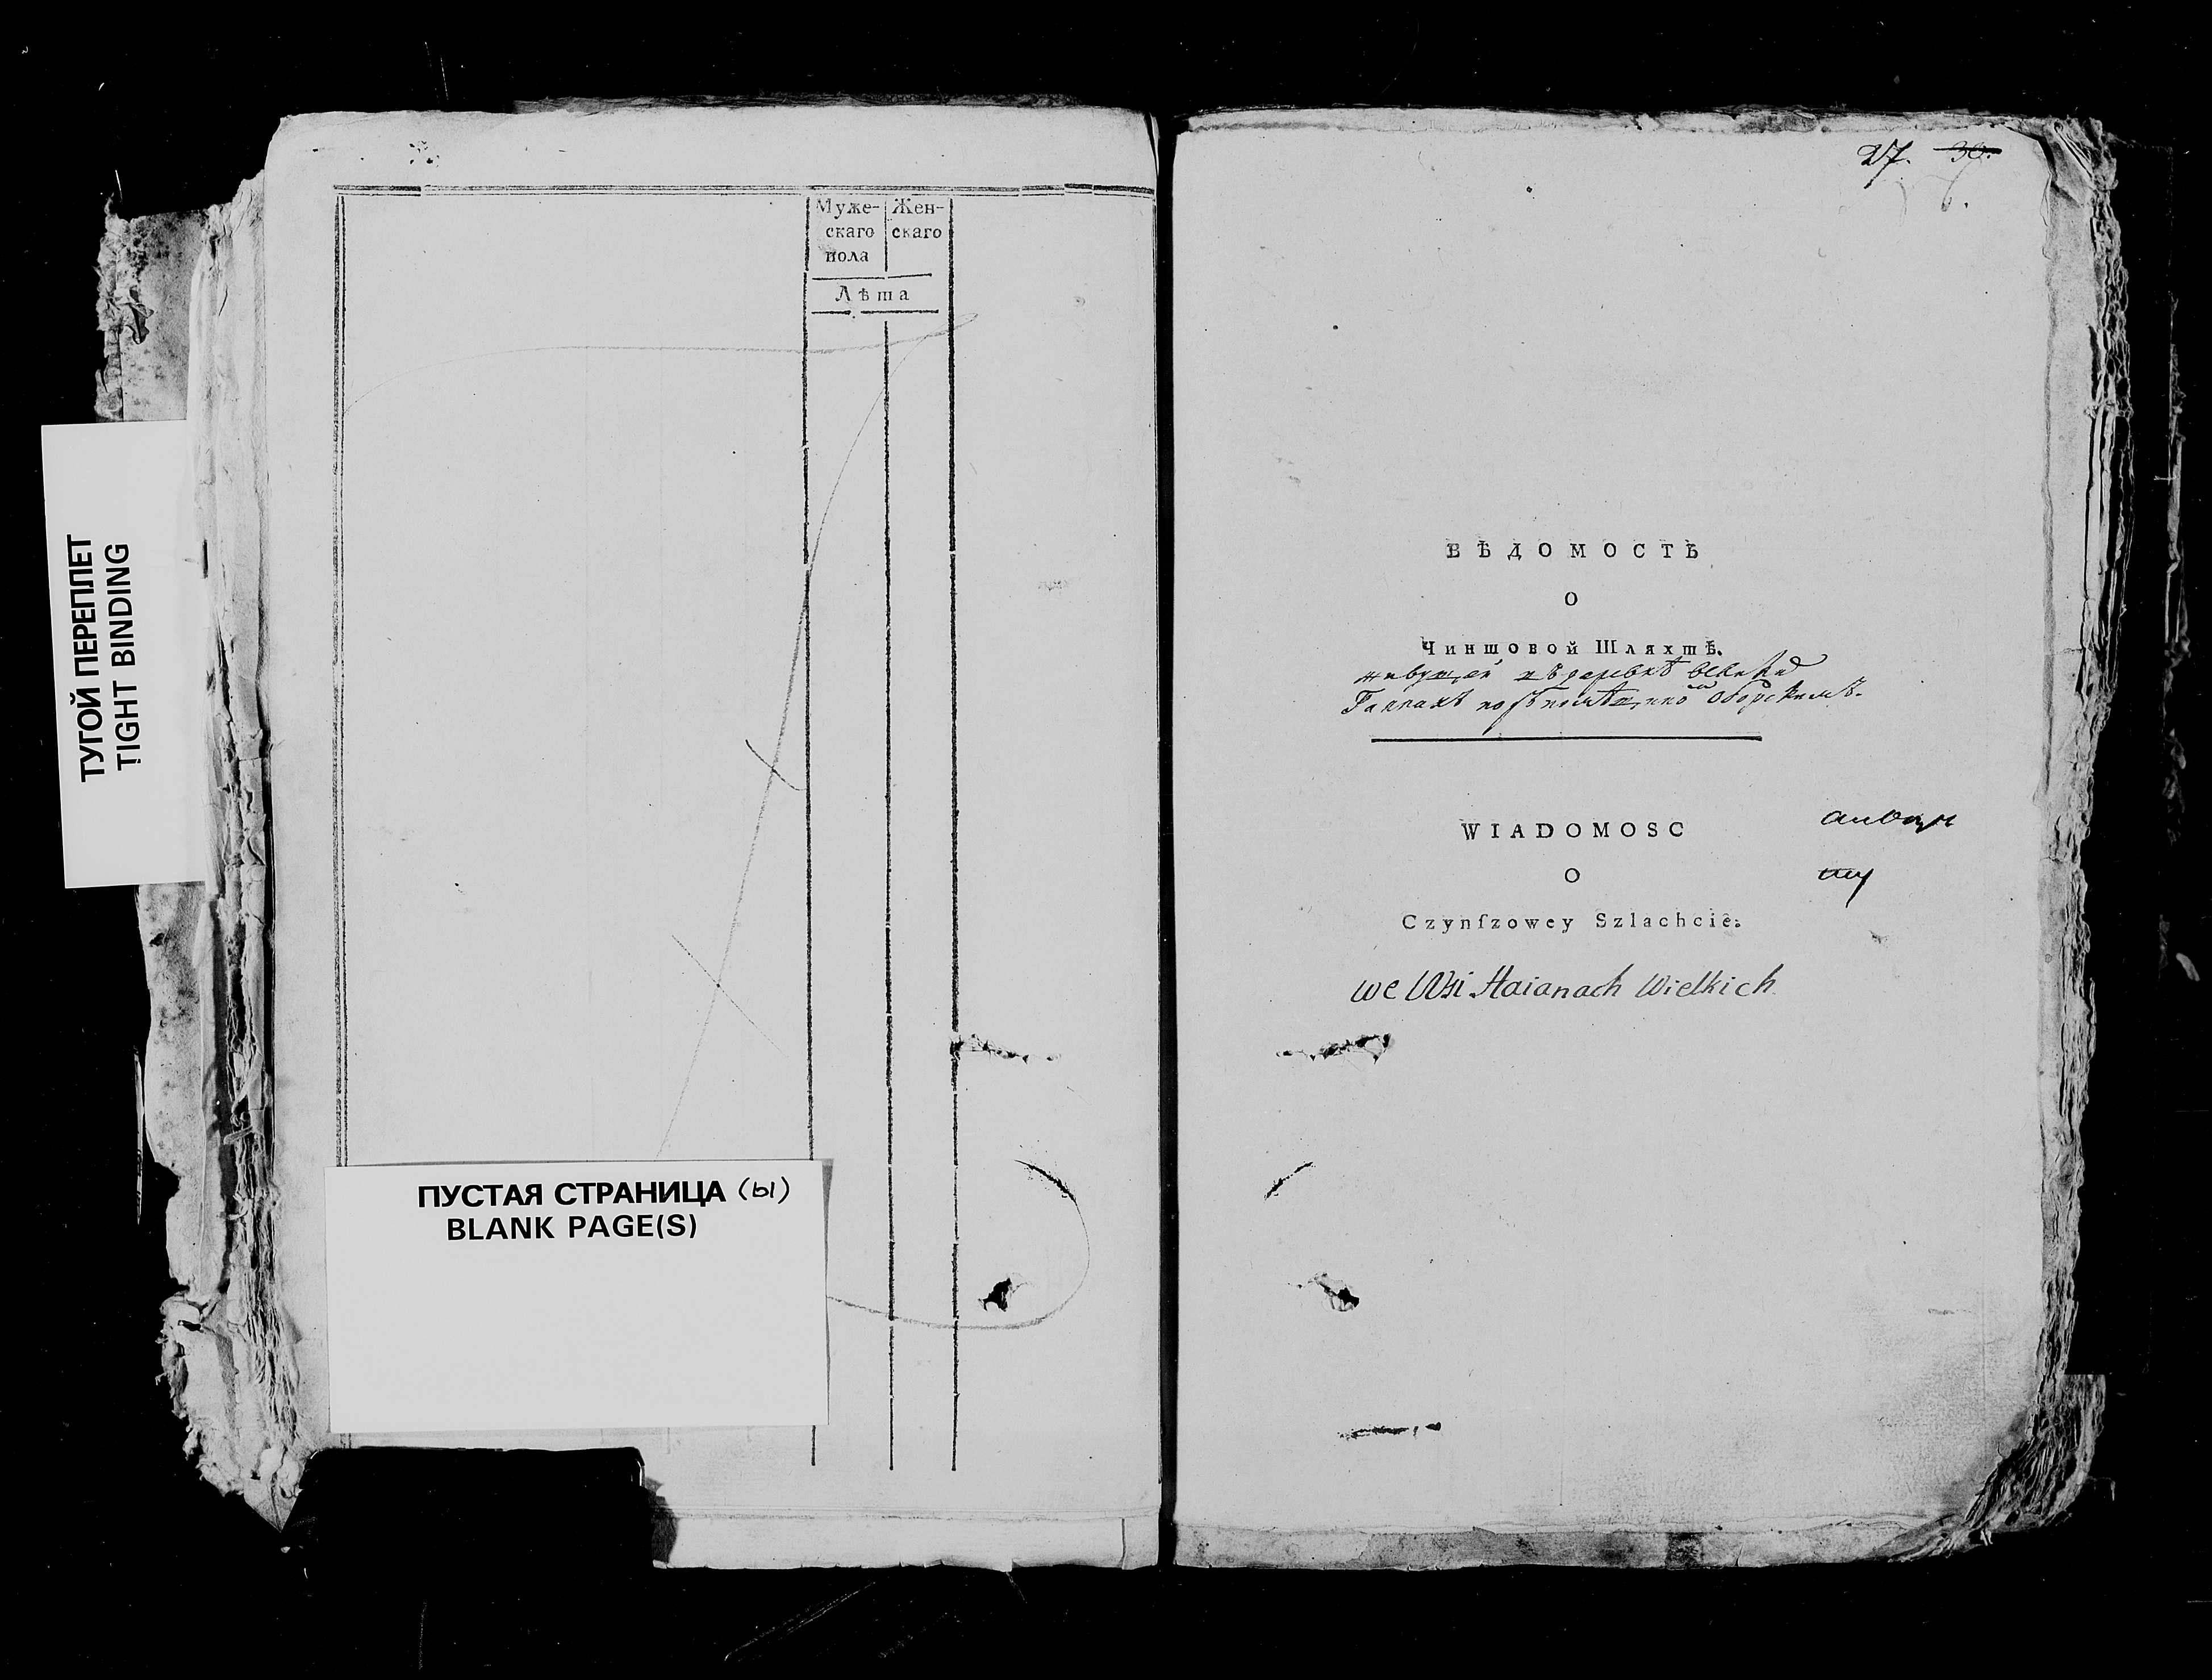 ТУГОЙ ПЕРЕПЛЕТ
TIGHT BINDING
Муже-
скаго
пола
Жен-
скаго
Лѣта
ПУСТАЯ СТРАНИЦА (ы)
BLANK PAGE(S)
27. 30.
ВѢДОМОСТЬ
О
Чиншовой Шляхтѣ.
живущей въ деревнѣ
WIADOMOSC
O
Czynſzowey Szlachcie.
we Wsi Haianach Wielkich